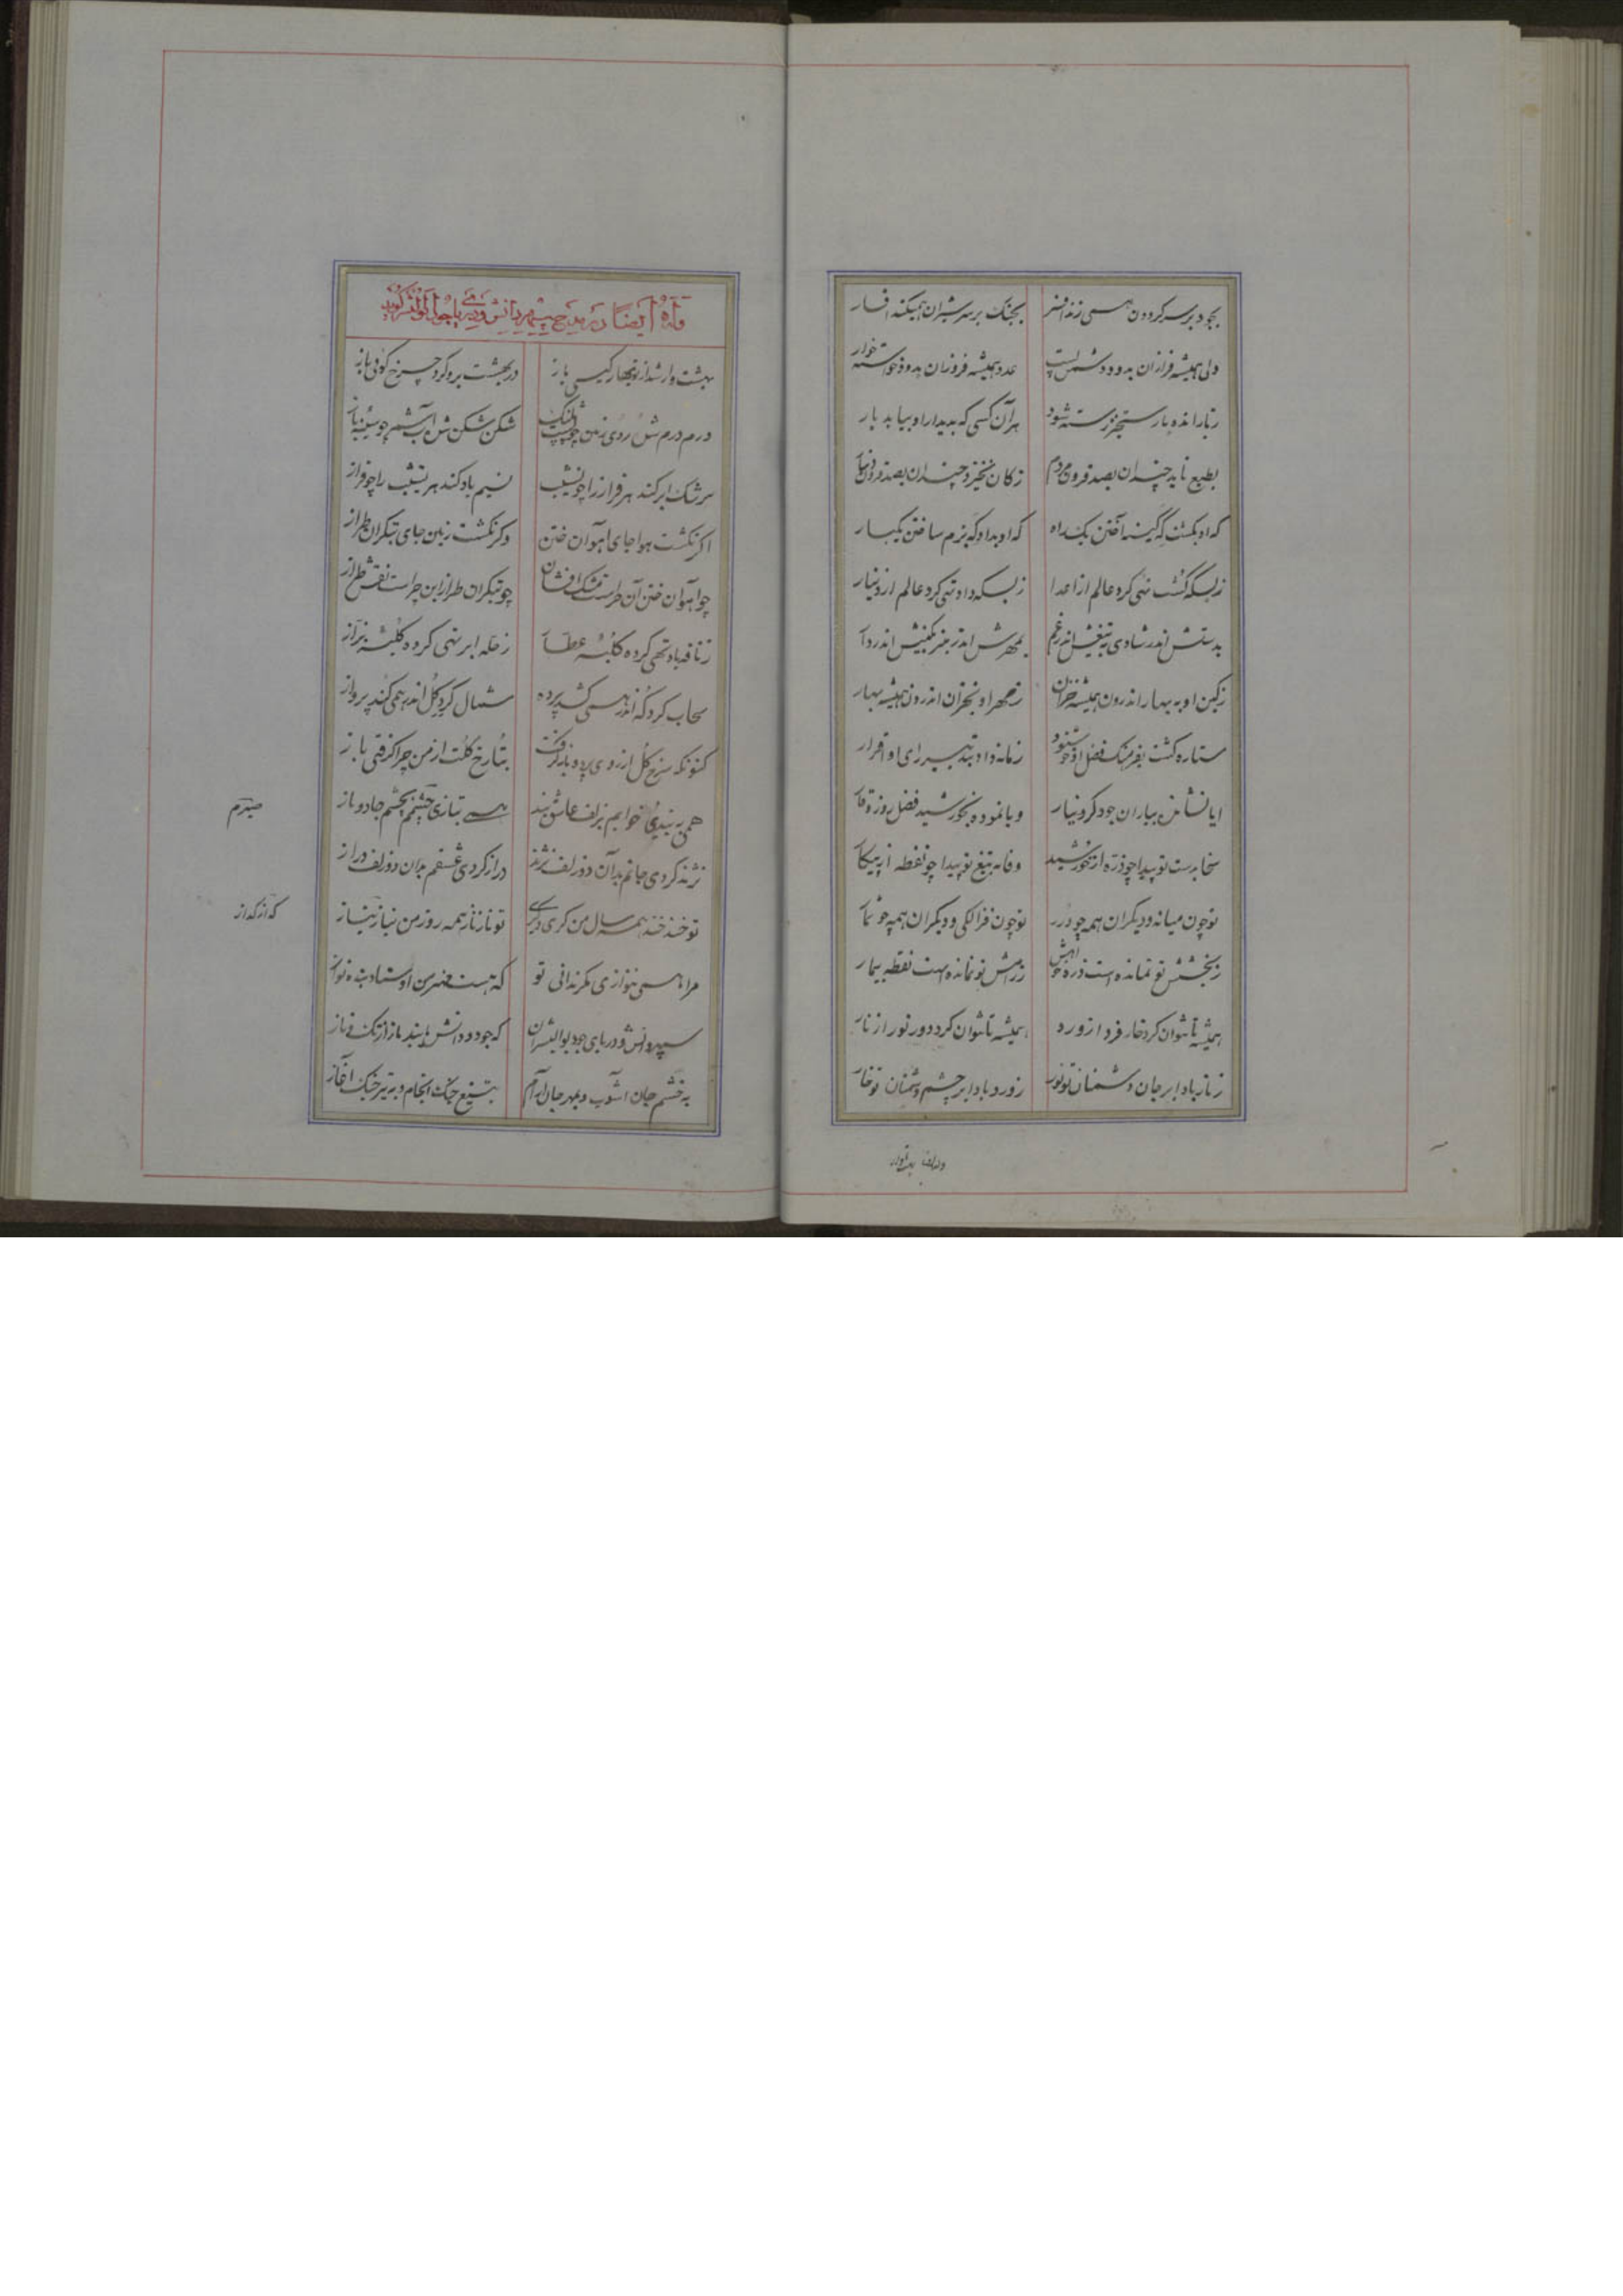 بجود بر سر گردون همی زند افسر بجنگ بر سر شیران همیکند افسار
ولی همیشه فرازان بدو و دشمن پست عدو همیشه فروزان بدو و خواسته خوار
زبار انده بار ستجیز رسته شود هر آن کسی که بدیدار او بیابد بار
بطبع ناید چندان بصد قرون مردم ز کان نخیزد چندان بصد قرون دینار
که او بکشت گه کینه آختن یک راه که او بداد گه بزم ساختن یکبار
ز بسکه کشت تهی کرد عالم از اعدا ز بسکه داد تهی کرد عالم از دینار
بدستش اندر شادی بتیغش اندر غم بمهرش اندر منبر بکینش اندر دار
ز کین او به بهار اندرون همیشه خزان ز مهر او بخزان اندرون همیشه بهار
ستاره گشت بفرهنگ فضل او خوشنود زمانه داد بتدبیر رای او اقرار
ایا نشانده بباران جود گرد نیاز و یا نموده بخورشید فضل روز وقار
سخا بدست تو پیدا چو ذره از خورشید وفا به تیغ تو پیدا چو نقطه از پیکار
تو چون میانه و دیگران همه چو درر تو چون فذالکی و دیگران همه چو شمار
ز بخشش تو نمانده است ذره خواهش ز رامش تو نمانده است نقطه بیمار
همیشه تا نتوان کرد خار فرد از ورد همیشه تا نتوان کرد دور نور از نار
ز نار باد ابر جان دشمنان تو نور ز ورد باد ابر چشم دشمنان تو خار
وله ایضا بهشت وار
وله ایضا در مدح سپهر دانش و دریای جود ابوالیسر گوید
بهشت وار شد از نوبهار گیتی باز در بهشت برو کرد چرخ گوئی باز
درم درم شد روی زمین چو پشت پلنگ شکن شکن شد آب شمر چو سینه باز
سرشک ابر کند هر فراز را چو نشیب نسیم باد کند هر نشیب را چو فراز
اگر نگشت هوا جای آهوان ختن وگر نگشت زمین جای تبگران طراز
چو آهوان ختن آن چراست مشک افشان چو تبگران طراز این چراست نقش طراز
ز نافه باد تهی کرده کلبه عطار ز حله ابر تهی کرده کلبه بزاز
سحاب گرد گه اندر همی کشد پرده شمال گرد گل اندر همی کند پرواز
کنونکه سرخ گل از روی پرده باز گرفت بتا رخ گلت از من چرا گرفتی باز
همی به بندی خوابم بزلف عاشق بند همی بتازی چشمم بچشم جادو باز
صبرم
نژند کردی جانم بدآن دو زلف نژند دراز کردی عشقم بدان دو زلف دراز
تو خند خند همه سال من گری گری تو ناز ناز همه روز من نیاز نیاز
گداز گداز
مرا همی ننوازی مگر ندانی تو که هست مهتر من اوستاد بنده نواز
سپهر دانش و دریای جود بوالیسر آن که جود و دانش باشد باز ازو تک و تاز
به خشم جان آشوب و بمهر جان آرام بتیغ جنگ انجام و به تیر جنگ آغاز